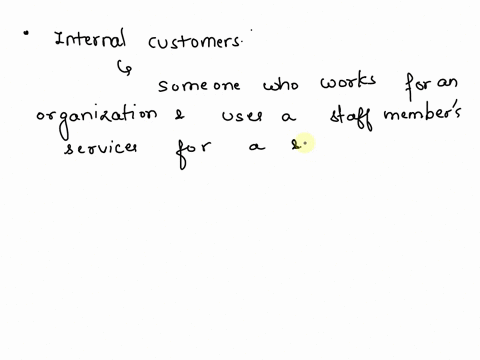 • Internal customers.
↳ someone who works for an
organization & uses a staff member's
services for a s